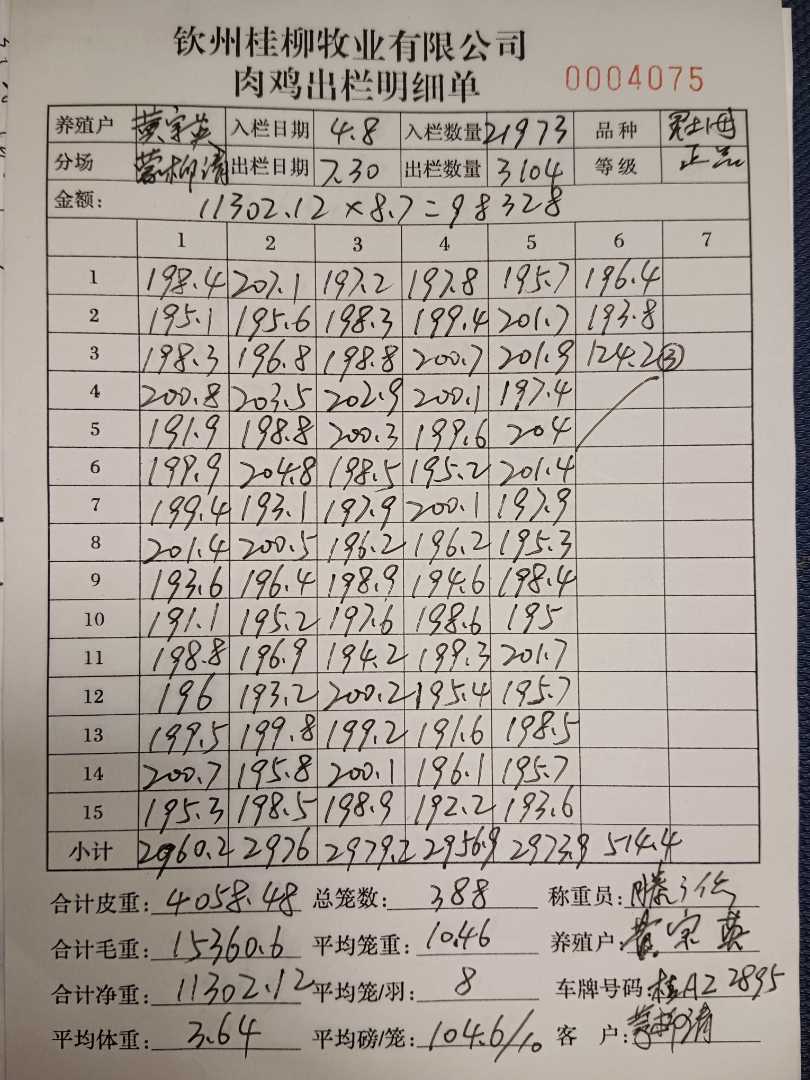 钦州桂柳牧业有限公司
肉鸡出栏明细单 0004075
养殖户 黄宗英 入栏日期 4.8 入栏数量 21973 品种
分场 蒙柳清 出栏日期 7.30 出栏数量 3104 等级 正品
金额: 11302.12×8.7=98328
1 2 3 4 5 6 7
1 198.4 207.1 197.2 197.8 195.7 196.4
2 195.1 195.6 198.3 199.4 201.7 193.8
3 198.3 196.8 198.8 200.7 201.9 124.2 ③
4 200.8 203.5 202.9 200.1 197.4
5 191.9 198.8 200.3 199.6 204
6 199.9 204.8 198.5 195.2 201.4
7 199.4 193.1 197.9 200.1 197.9
8 201.4 200.5 196.2 196.2 195.3
9 193.6 196.4 198.9 194.6 198.4
10 191.1 195.2 197.6 198.6 195
11 198.8 196.9 194.2 199.3 201.7
12 196 193.2 200.2 195.4 195.7
13 199.5 199.8 199.2 191.6 198.5
14 200.7 195.8 200.1 196.1 195.7
15 195.3 198.5 198.9 192.2 193.6
小计 2960.2 2976 2979.2 2956.9 2973.9 514.4
合计皮重: 4058.48 总笼数: 388 称重员:
合计毛重: 15360.6 平均笼重: 10.46 养殖户: 黄宗英
合计净重: 11302.12 平均笼/羽: 8 车牌号码: 桂AZ2895
平均体重: 3.64 平均磅/笼: 104.6/10 客户: 蒙柳清